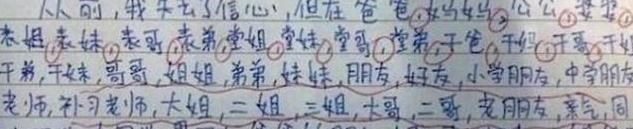 从前,我失去了信心,但在爸爸,妈妈,公公,婆婆
表姐,表妹,表哥,表弟,堂姐,堂妹,堂哥,堂弟,干爸,干妈,干哥,干姐
干弟,干妹,哥哥,姐姐,弟弟,妹妹,朋友,好友,小学朋友,中学朋友
老师,补习老师,大姐,二姐,三姐,大哥,二哥,老朋友,亲戚,同